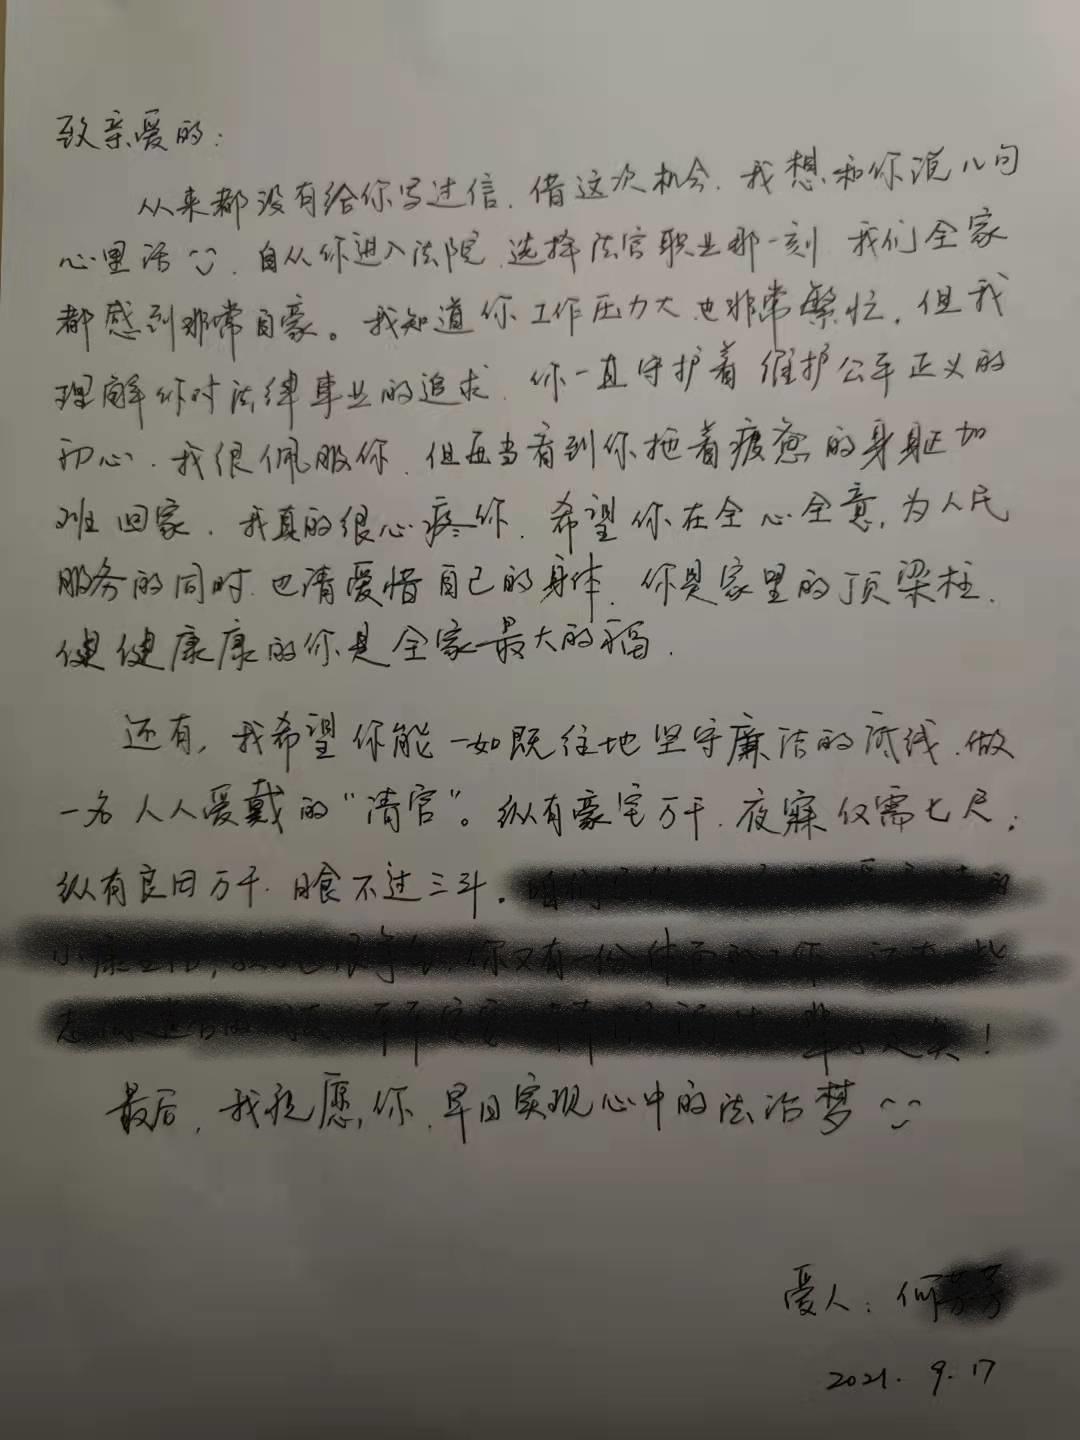 致亲爱的:
从来都没有给你写过信,借这次机会,我想和你说几句
心里话,自从你进入法院,选择法官职业那一刻,我们全家
都感到非常自豪。我知道你工作压力大也非常繁忙,但我
理解你对法律事业的追求,你一直守护着维护公平正义的
初心,我很佩服你,但每当看到你拖着疲惫的身躯加
班回家,我真的很心疼你,希望你在全心全意,为人民
服务的同时,也请爱惜自己的身体,你是家里的顶梁柱,
健健康康的你是全家最大的福.
还有,我希望你能一如既往地坚守廉洁的底线,做
一名人人爱戴的“清官”。纵有豪宅万千,夜寐仅需七尺;
纵有良田万千,日食不过三斗。
最后,我祝愿,你,早日实现心中的法治梦
爱人:何
2021.9.17